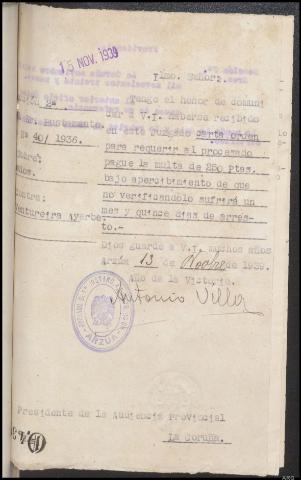 15 NOV. 1939
Ilmo. Señor:
Tengo el honor de comuni
car a V.I. haberse recibido
en este Juzgado carta orden
para requerir al procesado
pague la multa de 250 Ptas.
bajo apercibimiento de que
no verificandolo sufrirá un
mes y quince dias de arres-
to.-
Bustamante.
Nº 40/1936.
bre:
ños.
ntra:
Ventureira Ayarbe.
Dios guarde a V.I. muchos años
Arzúa 13 de Novbre de 1939.
Año de la Victoria.
Antonio Villa
ARZUA
Presidente de la Audiencia Provincial
La Coruña.